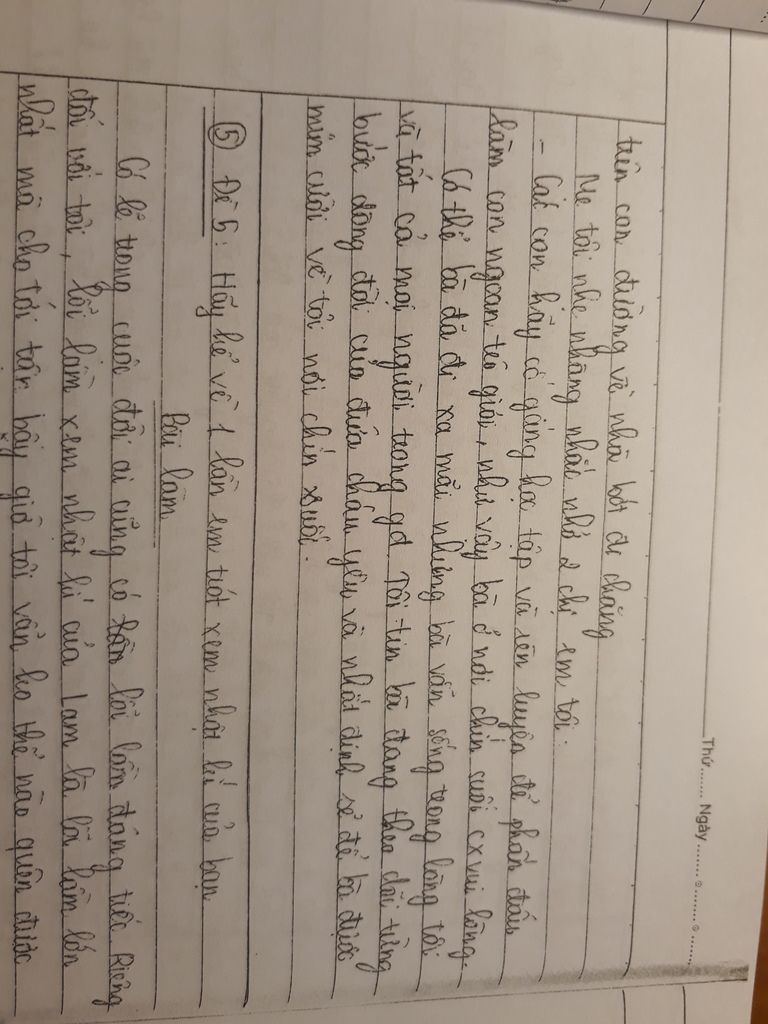 Thứ....... Ngày ........ ⊙ ........ ⊙ ......
trên con đường về nhà bớt đi chăng
Mẹ tôi nhẹ nhàng nhắc nhở 2 chị em tôi:
- Các con hãy cố gắng học tập và rèn luyện để phấn đấu
làm con ngoan trò giỏi, như vậy bà ở nơi chín suối cx vui lòng.
Có thể bà đã đi xa mãi nhưng bà vẫn sống trong lòng tôi
và tất cả mọi người trong gđ. Tôi tin bà đang theo dõi từng
bước dòng đời của đứa cháu yêu và nhất định sẽ để bà được
mỉm cười về tôi nơi chín suối.
⑤ Đề 5: Hãy kể về 1 lần em trót xem nhật kí của bạn
Bài làm
Có lẽ trong cuộc đời ai cũng có lỗi lầm đáng tiếc. Riêng
đối với tôi, lỗi lầm xem nhật kí của Lam là lỗi lầm lớn
nhất mà cho tới tận bây giờ tôi vẫn ko thể nào quên được